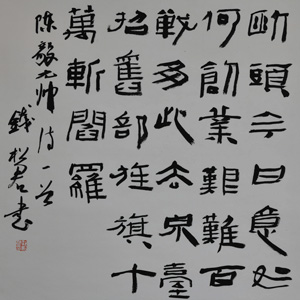 断頭今日意如
何創業艱難百
戰多此去泉臺
招舊部旌旗十
萬斬閻羅
陈毅元帅诗一首
錢松君书